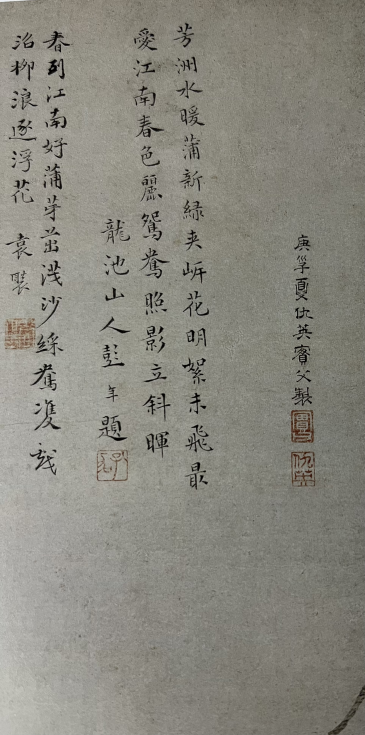 庚子夏仇英實父製
實父
仇英
芳洲水暖蒲新綠夾岸花明絮未飛最
愛江南春色麗鴛鴦照影立斜暉
龍池山人彭年題
春到江南好蒲芽茁淺沙綵鴦雙戲
沼柳浪逐浮花 袁褧